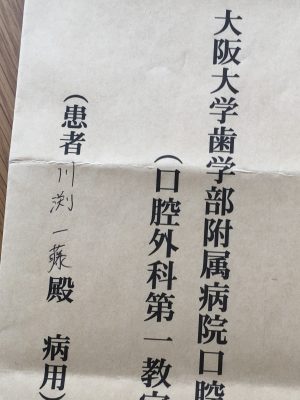 大阪大学歯学部附属病院口腔
(口腔外科第一教室
(患者 川渕一藤殿 病用)